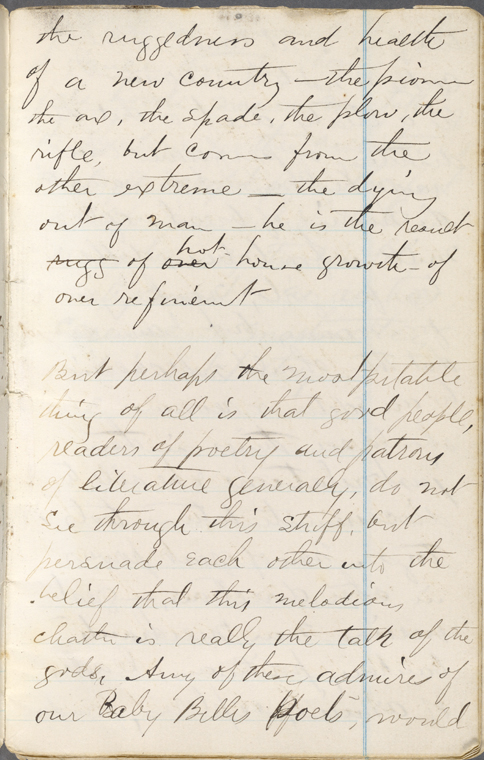 the ruggedness and health
of a new country — the pionee
the axe, the spade, the plow, the
rifle, but comes from the
other extreme — the dying
out of man — he is the result
rugg of over hot house growth — of
over refinement

But perhaps the most pitable
thing of all is that good people,
readers of poetry and patrons
of literature generally, do not
see through this stuff, but
persuade each other into the
belief that this melodious
chatter is really the talk of the
gods. Any of these admires of
our Baby Bells Poets, would